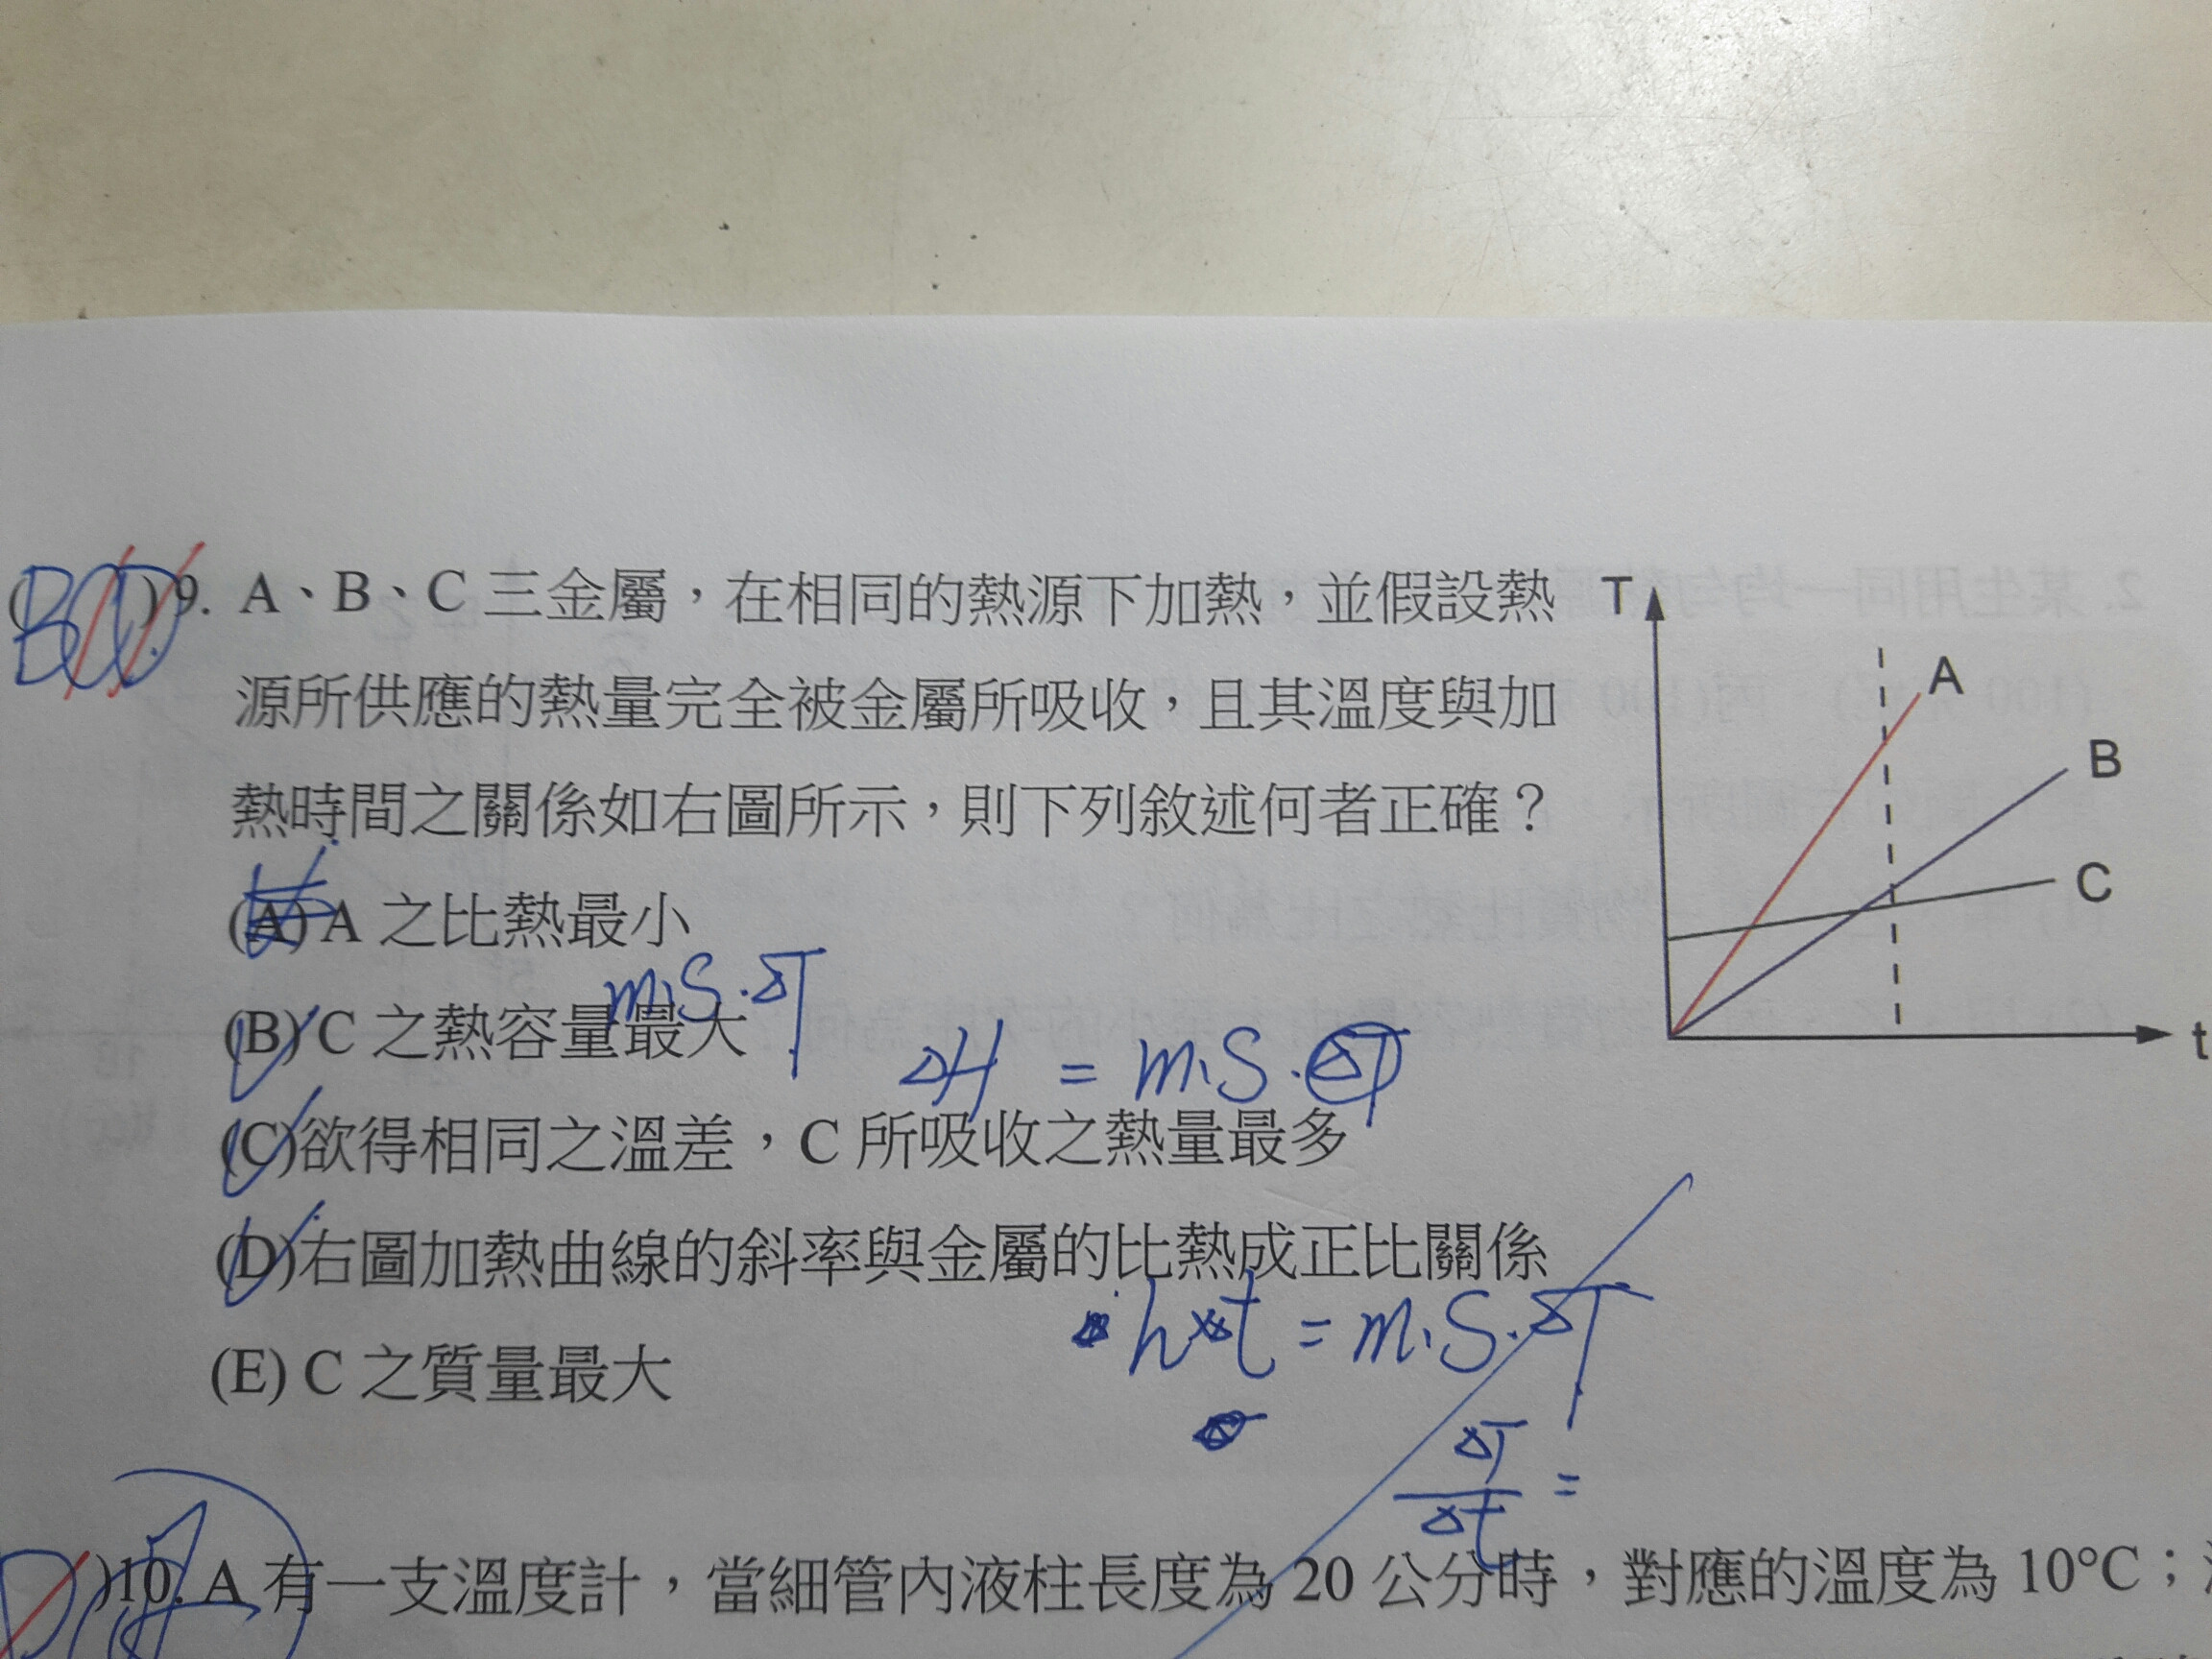 9. A、B、C 三金屬，在相同的熱源下加熱，並假設熱
源所供應的熱量完全被金屬所吸收，且其溫度與加
熱時間之關係如右圖所示，則下列敘述何者正確？
T
A
B
C
t
(A) A 之比熱最小
m.S.ΔT
(B) C 之熱容量最大
ΔH = m.S.ΔT
(C)欲得相同之溫差，C 所吸收之熱量最多
(D)右圖加熱曲線的斜率與金屬的比熱成正比關係
h×t = m.S.ΔT
(E) C 之質量最大
ΔT
Δt
=
)10. A 有一支溫度計，當細管內液柱長度為 20 公分時，對應的溫度為 10°C；